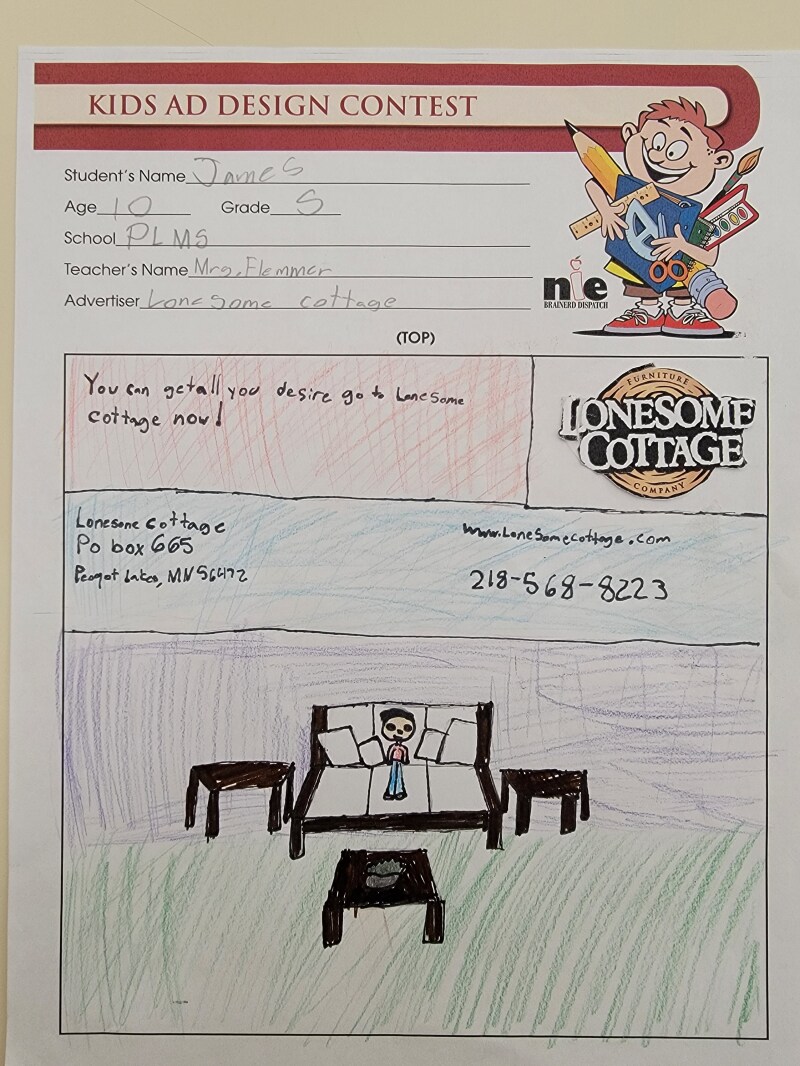 KIDS AD DESIGN CONTEST
Student's Name James
Age 10 Grade 5
School PLMS
Teacher's Name Mrs. Flemmer
Advertiser Lonesome cottage
nie
BRAINERD DISPATCH
(TOP)
You can get all you desire go to Lonesome
cottage now!
FURNITURE
LONESOME
COTTAGE
COMPANY
Lonesome cottage
Po box 665
Peqot Lakes, MN 56472
www.LoneSomecottage.com
218-568-8223